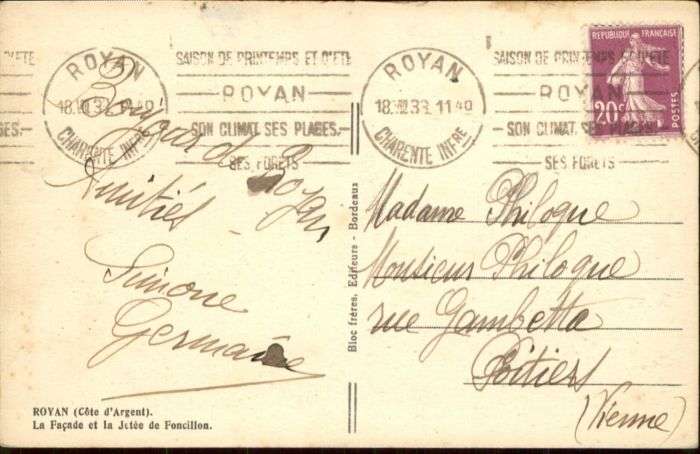 SAISON DE PRINTEMPS ET D'ÉTÉ
ROYAN
SON CLIMAT. SES PLAGES.
SES FORETS
ROYAN
CHARENTE INFRE
ROYAN
18. 33 11 40
CHARENTE INFRE
SAISON DE PRINTEMPS ET D'ÉTÉ
ROYAN
SON CLIMAT. SES PLAGES.
SES FORETS
REPUBLIQUE FRANÇAISE
20c
POSTES
Bonjour de Royan
Amitiés
Simone
Germaine
Bloc frères, Editeurs - Bordeaux
Madame Philoque
Monsieur Philoque
rue Gambetta
Poitiers
(Vienne)
ROYAN (Côte d'Argent).
La Façade et la Jetée de Foncillon.